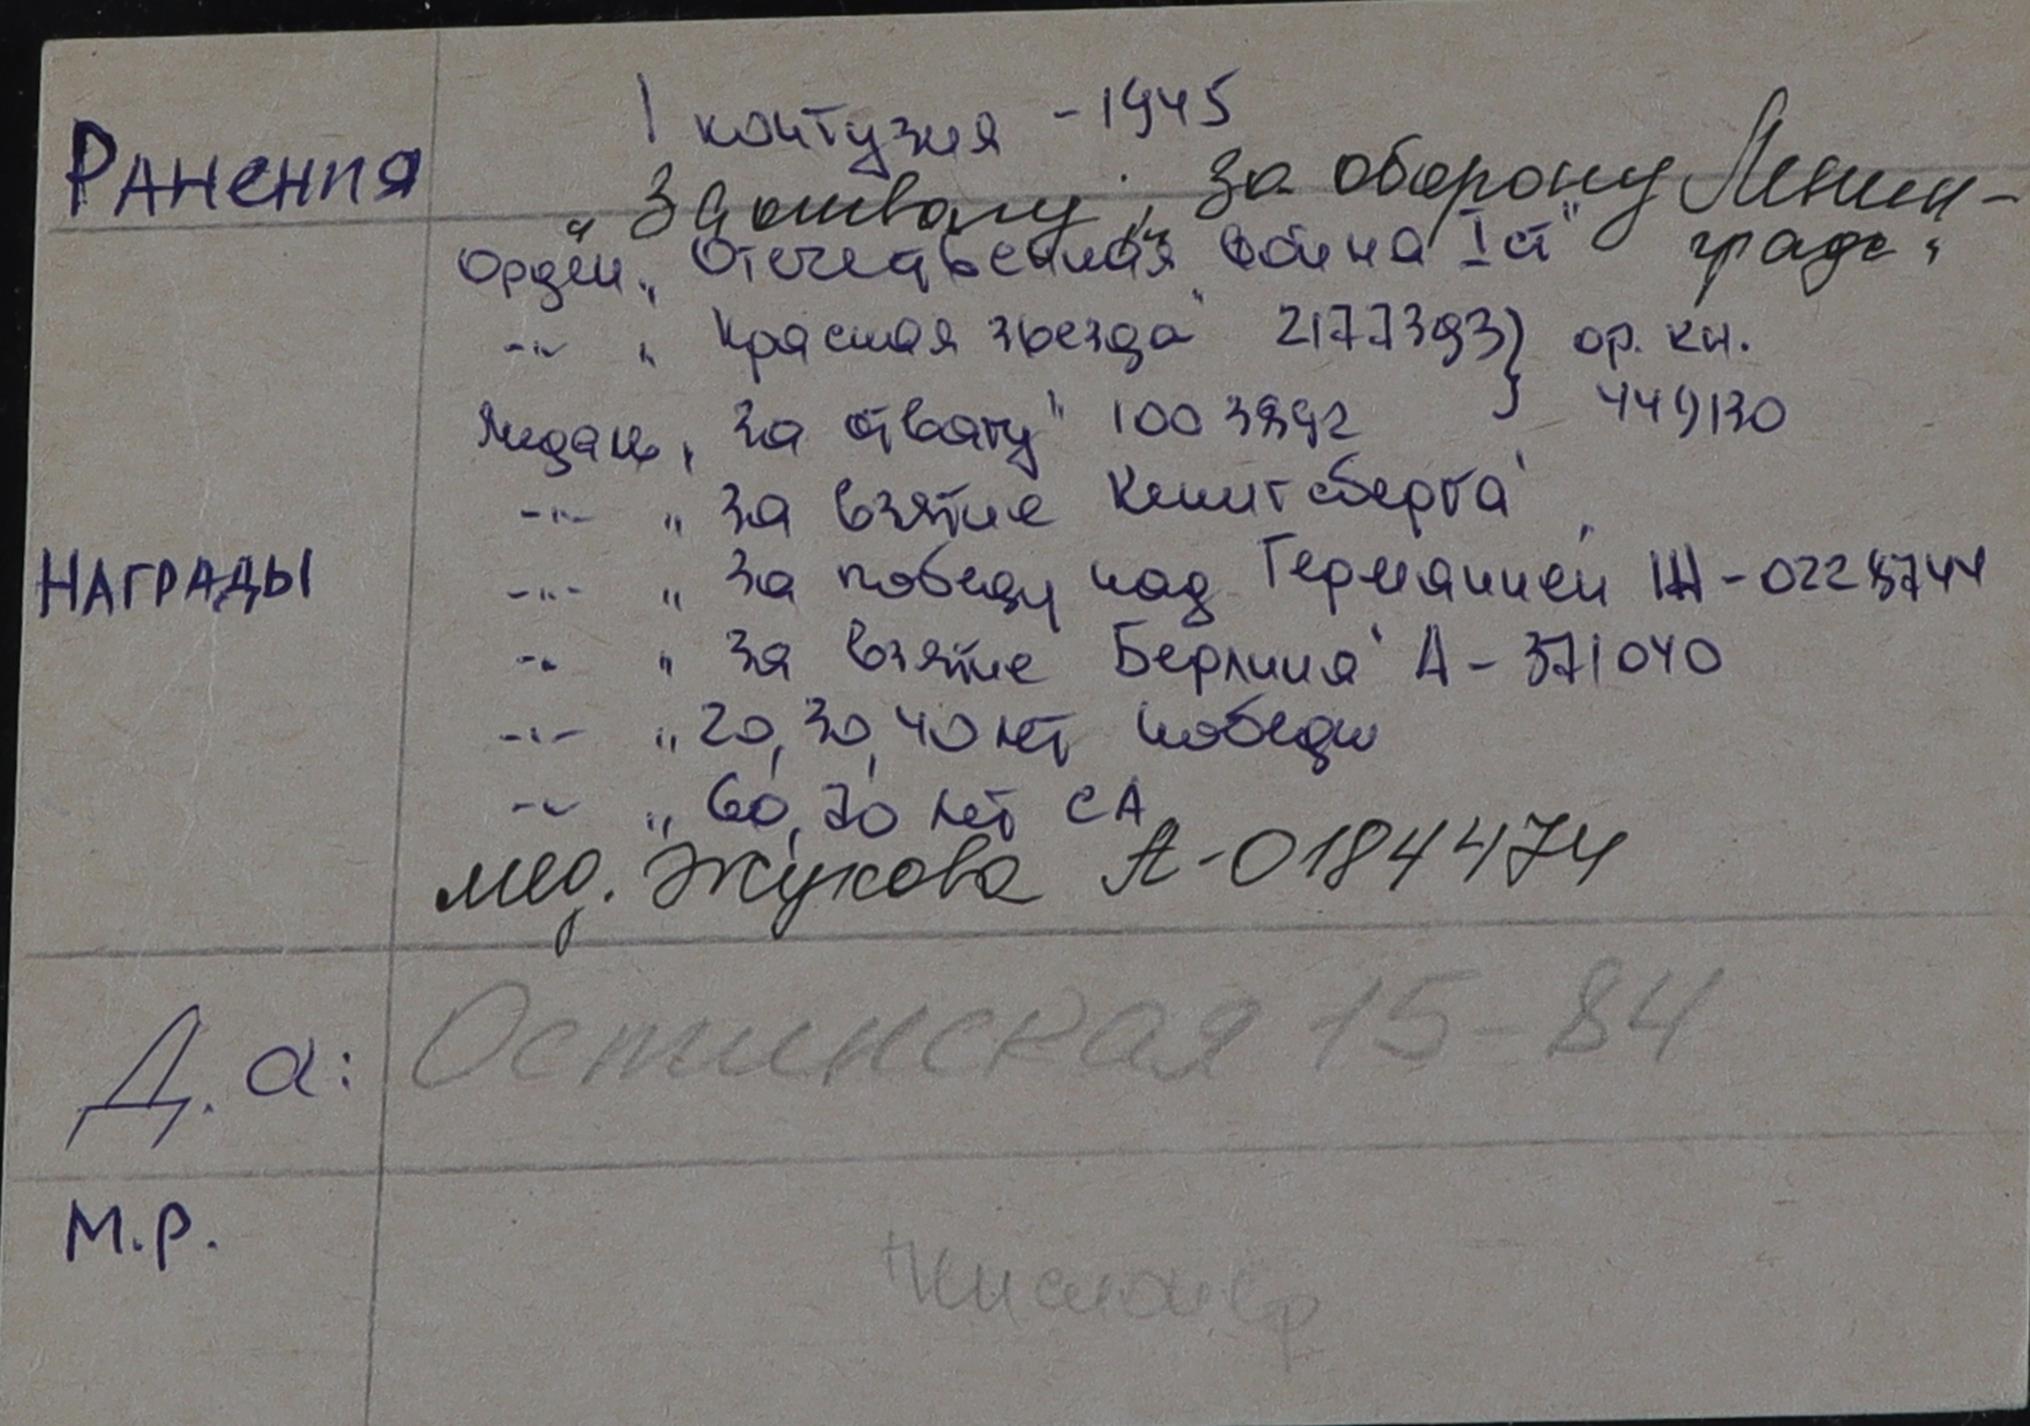 1 контузия - 1945
Ранения
"За отвагу", "За оборону Ленин-
града"
Орден „Отечественная война I ст"
-"- „Красная звезда" 2177393 } ор. кн.
Медаль „За отвагу" 1003892 } 449130
-"- „За взятие Кенигсберга"
Награды
-"- „За победу над Германией" Ш-0228744
-"- „За взятие Берлина" А-371040
-"- „20, 30, 40 лет победы
-"- „60, 70 лет СА
мед. Жукова А-0184474
Д. а: Остинская 15-84
М.Р.